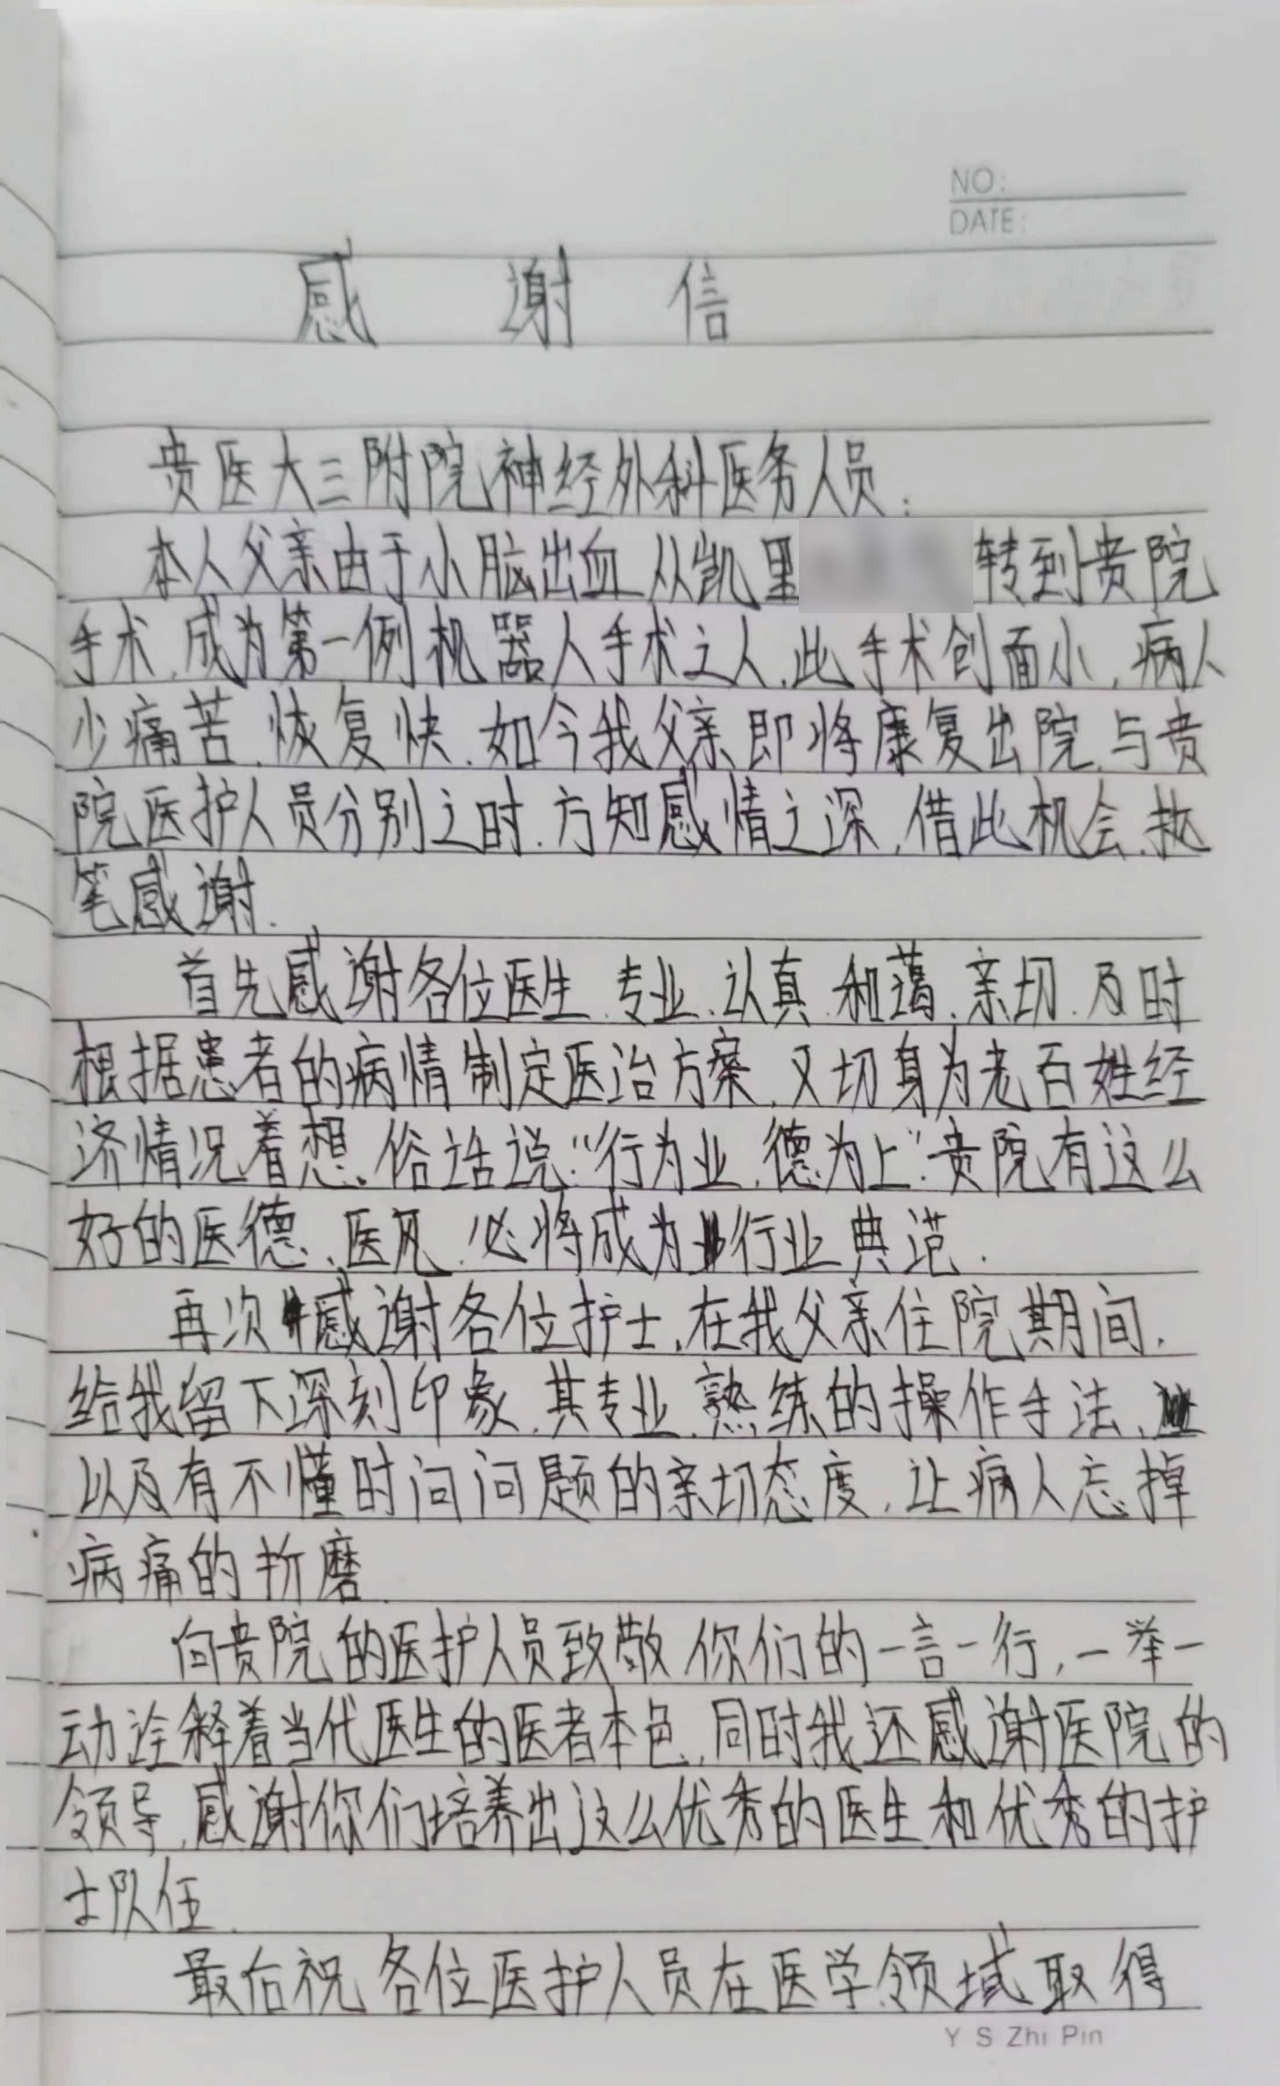 NO:
DATE:
感 谢 信
贵医大三附院神经外科医务人员:
本人父亲由于小脑出血从凯里 转到贵院
手术,成为第一例机器人手术之人,此手术创面小,病人
少痛苦,恢复快.如今我父亲即将康复出院,与贵
院医护人员分别之时,方知感情之深,借此机会,执
笔感谢.
首先感谢各位医生,专业、认真、和蔼、亲切、及时
根据患者的病情制定医治方案,又切身为老百姓经
济情况着想。俗话说:“行为业,德为上”.贵院有这么
好的医德、医风,必将成为行业典范.
再次感谢各位护士,在我父亲住院期间,
给我留下深刻印象,其专业、熟练的操作手法、
以及有不懂时问问题的亲切态度,让病人忘掉
病痛的折磨.
向贵院的医护人员致敬,你们的一言一行,一举一
动诠释着当代医生的医者本色,同时我还感谢医院的
领导,感谢你们培养出这么优秀的医生和优秀的护
士队伍.
最后祝各位医护人员在医学领域取得
Y S Zhi Pin